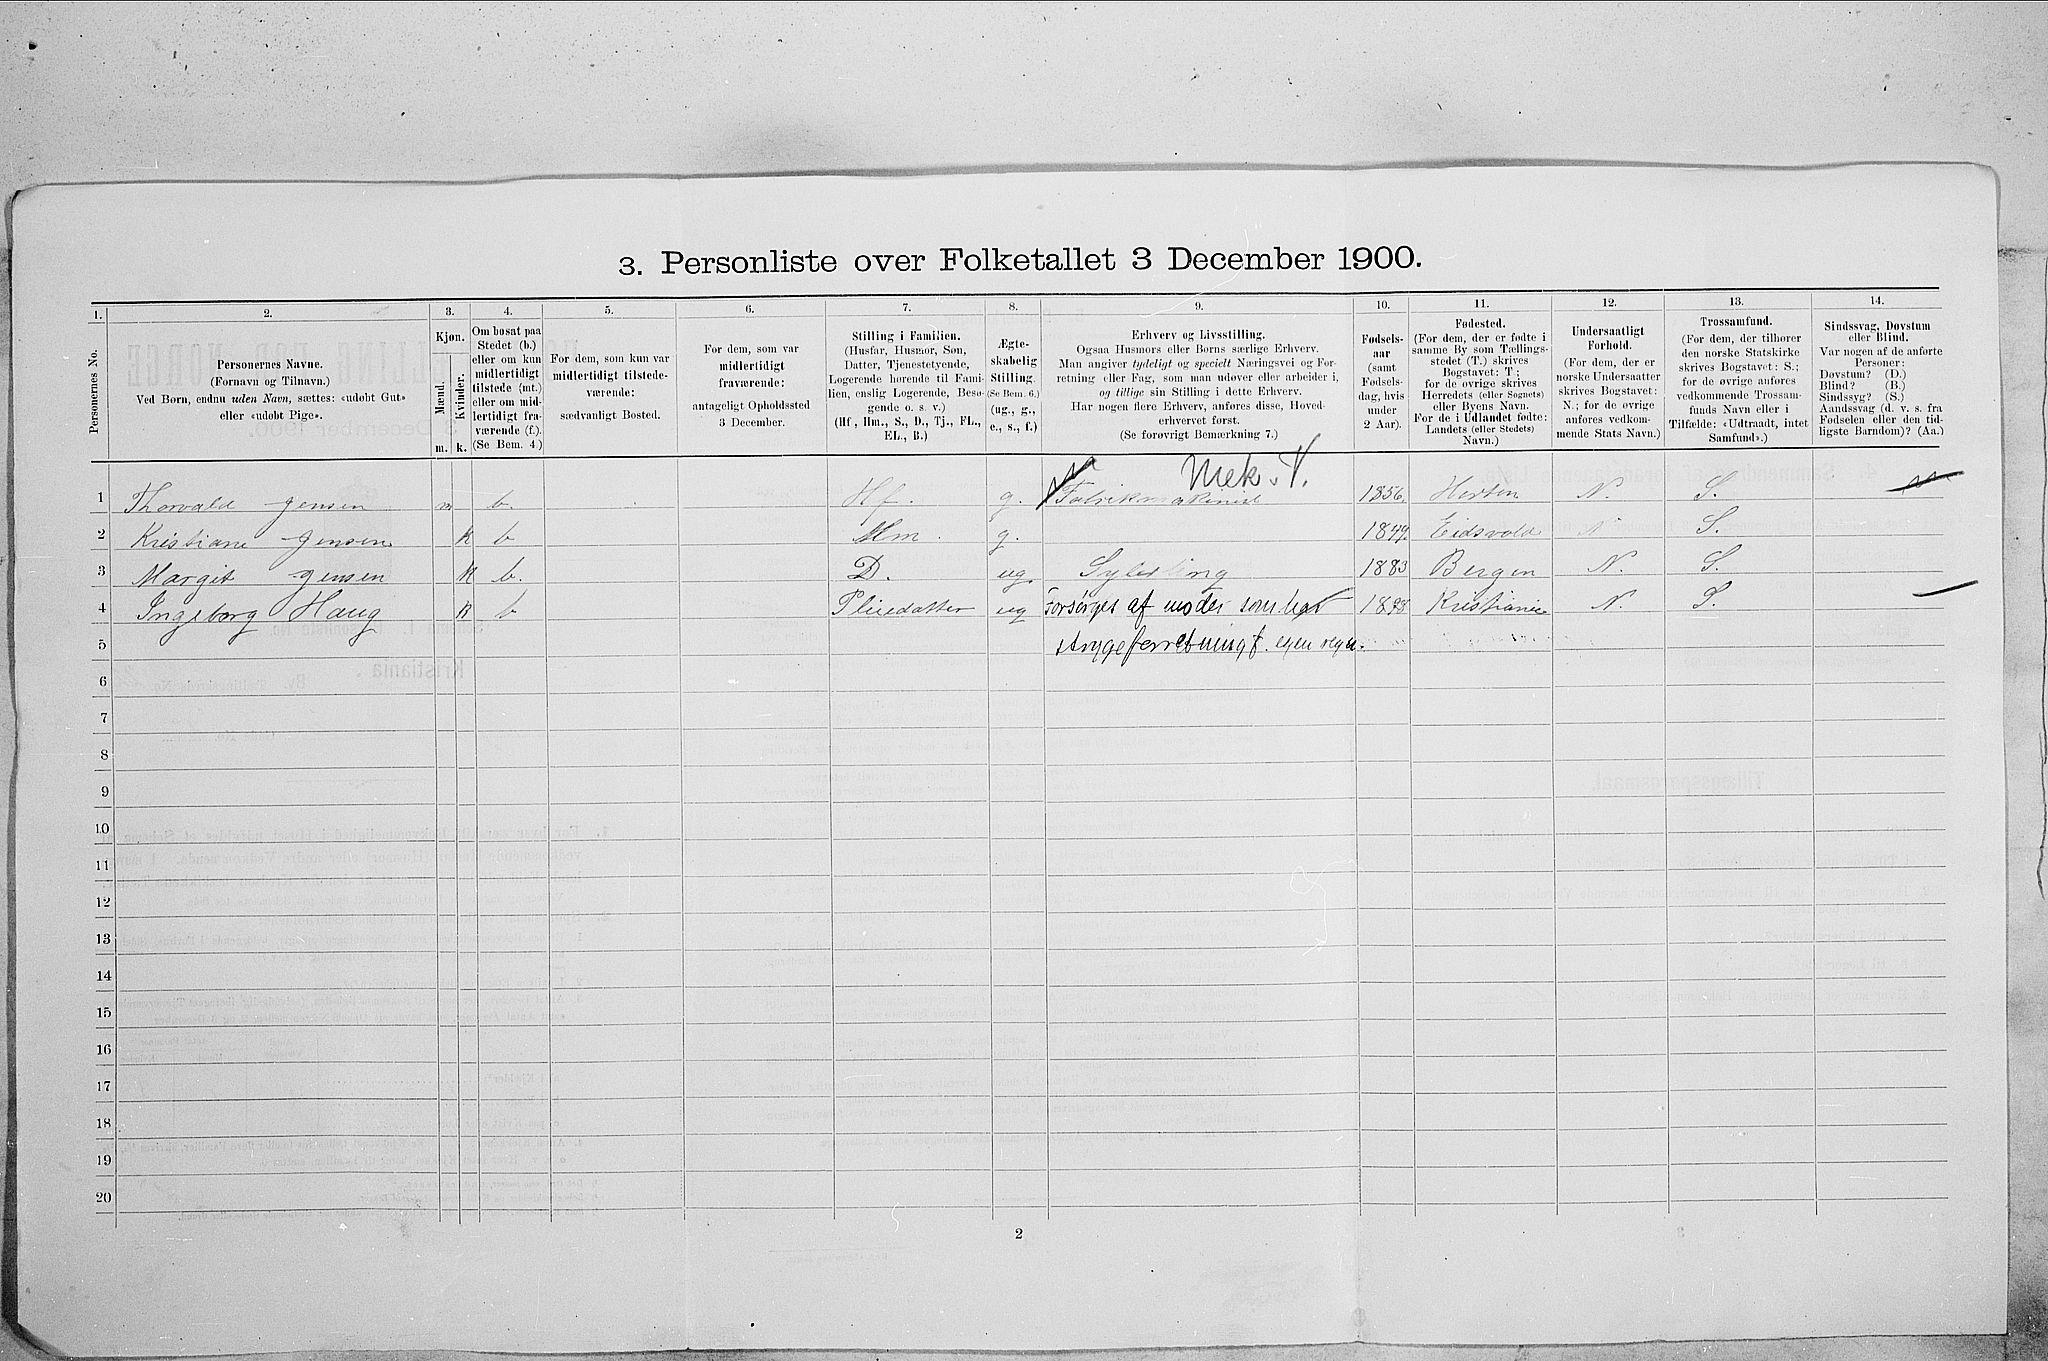 3. Personliste over Folketallet 3 December 1900.
1. 2. 3. 4. 5. 6. 7. 8. 9. 10. 11. 12. 13. 14.
Personernes No.
Personernes Navne.
(Fornavn og Tilnavn.)
Ved Børn, endnu uden Navn, sættes: «udøbt Gut»
eller «udøbt Pige».
Kjøn.
Mænd.
Kvinder.
m. k.
Om bosat paa
Stedet (b.)
eller om kun
midlertidigt
tilstede (mt.)
eller om mid-
lertidigt fra-
værende (f.).
(Se Bem. 4.)
For dem, som kun var
midlertidigt tilstede-
værende:
sædvanligt Bosted.
For dem, som var
midlertidigt
fraværende:
antageligt Opholdssted
3 December.
Stilling i Familien.
(Husfar, Husmor, Søn,
Datter, Tjenestetyende,
Logerende hørende til Fami-
lien, enslig Logerende, Besø-
gende o. s. v.)
(Hf, Hm., S., D., Tj., FL.,
EL., B.)
Ægte-
skabelig
Stilling.
(Se Bem. 6.)
(ug., g.,
e., s., f.)
Erhverv og Livsstilling.
Ogsaa Husmors eller Børns særlige Erhverv.
Man angiver tydeligt og specielt Næringsvei og For-
retning eller Fag, som man udøver eller arbeider i,
og tillige sin Stilling i dette Erhverv.
Har nogen flere Erhverv, anføres disse, Hoved-
erhvervet først.
(Se forøvrigt Bemærkning 7.)
Fødsels-
aar
(samt
Fødsels-
dag, hvis
under
2 Aar).
Fødested.
(For dem, der er fødte i
samme By som Tællings-
stedet (T.) skrives
Bogstavet: T;
for de øvrige skrives
Herredets (eller Sognets)
eller Byens Navn.
For de i Udlandet fødte:
Landets (eller Stedets)
Navn.)
Undersaatligt
Forhold.
(For dem, der er
norske Undersaatter
skrives Bogstavet:
N.; for de øvrige
anføres vedkom-
mende Stats Navn.)
Trossamfund.
(For dem, der tilhører
den norske Statskirke
skrives Bogstavet: S.;
for de øvrige anføres
vedkommende Trossam-
funds Navn eller i
Tilfælde: «Udtraadt, intet
Samfund».)
Sindssvag, Døvstum
eller Blind.
Var nogen af de anførte
Personer:
Døvstum? (D.)
Blind? (B.)
Sindssyg? (S.)
Aandssvag (d. v. s. fra
Fødselen eller den tid-
ligste Barndom)? (Aa.)
Mek. V.
1 Thorvald Jensen m b. Hf. g. Fabrikmaskinist 1856. Horten N. S.
2 Kristiane Jensen k b Hm. g. Eidsvold N S.
3 Margit Jensen k b. D. ug. 1883 Bergen N. S.
4 Ingeborg Haug k b Pleiedatter ug Forsørges af moder som har Kristiania N. S.
5 strygeforretning f. egen regn.
6
7
8
9
10
11
12
13
14
15
16
17
18
19
20
2